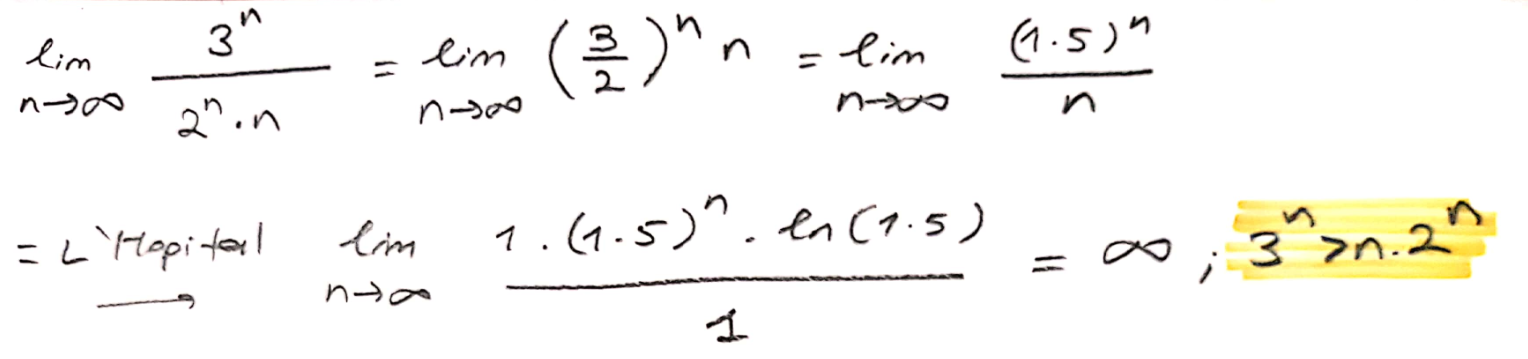 lim n→∞ 3^n / 2^n · n = lim n→∞ (3/2)^n n = lim n→∞ (1.5)^n / n
= L'Hopital → lim n→∞ 1 . (1.5)^n . ln(1.5) / 1 = ∞ ; 3^n > n . 2^n